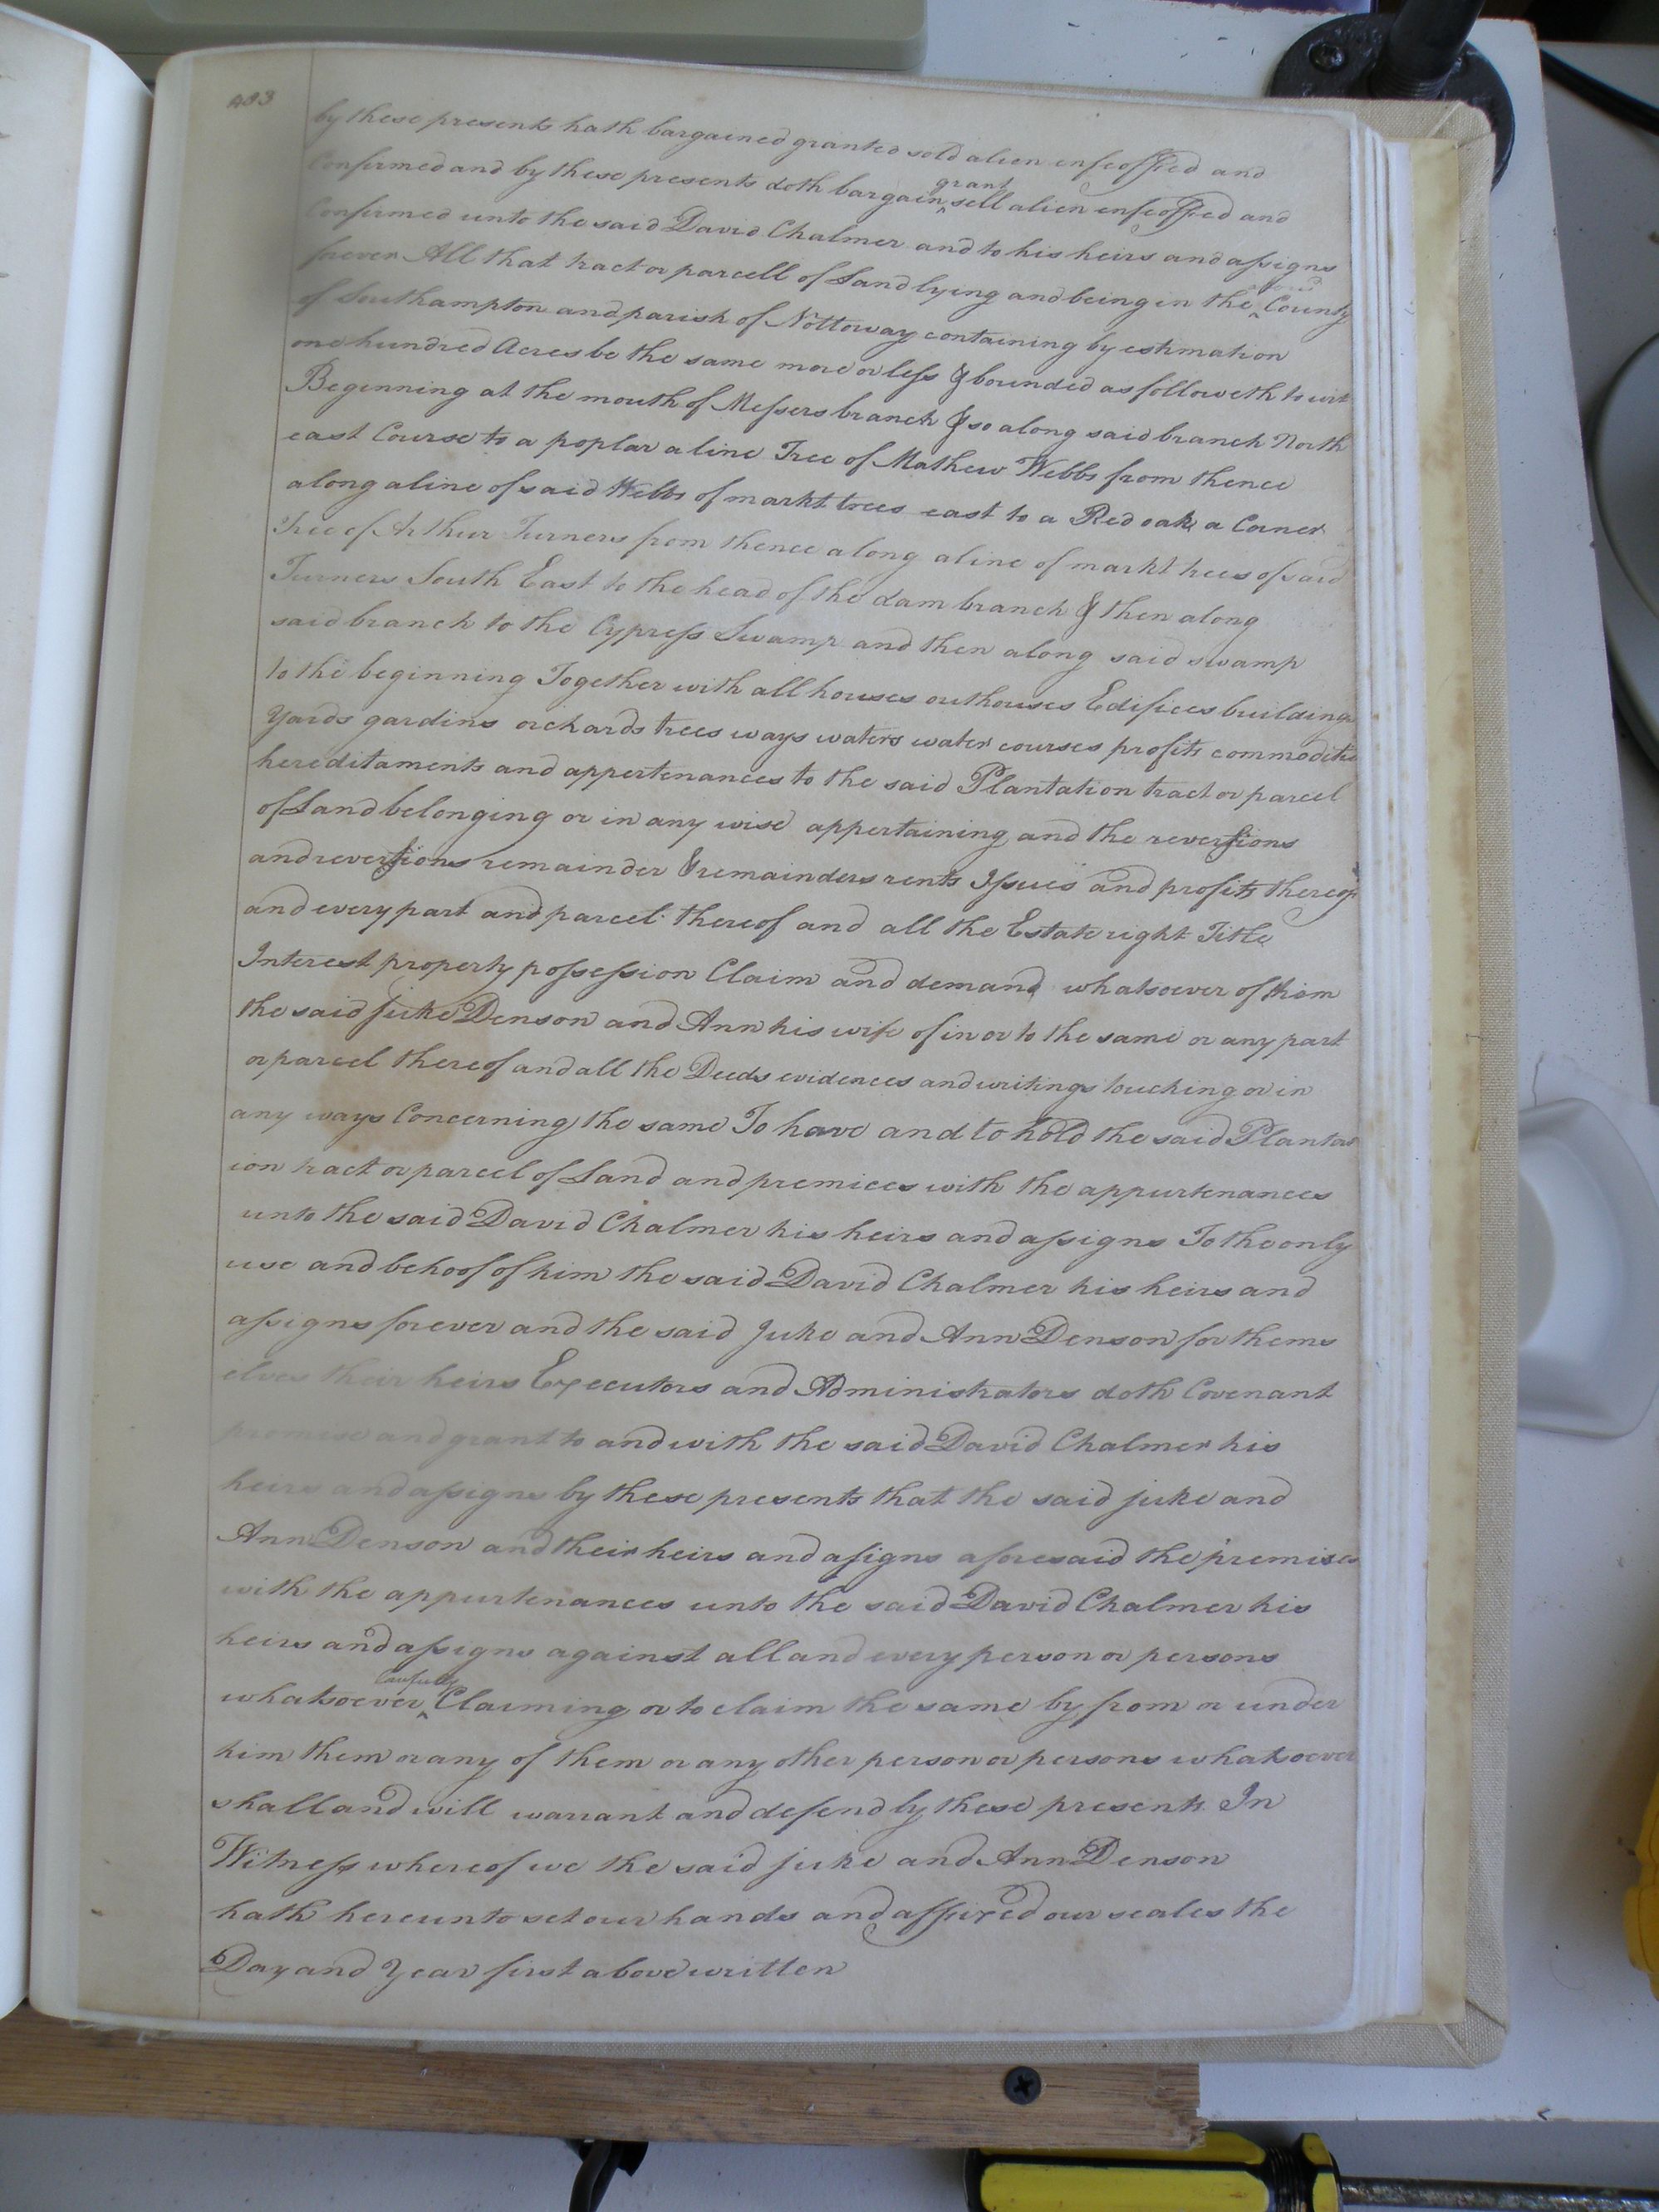 403
by these presents hath bargained granted sold alien enfeoffed and
Confirmed and by these presents doth bargain ^grant sell alien enfeoffed and
Confirmed unto the said David Chalmer and to his heirs and assigns
forever All that tract or parcell of Land lying and being in the ^ County
of Southampton and parish of Nottoway containing by estimation
one hundred Acres be the same more or less & bounded as followeth to wit
Beginning at the mouth of Messers branch & so along said branch North
east Course to a poplar a line Tree of Mathew Webbs from thence
along a line of said Webbs of markt trees east to a Red oak a Corner
Tree of Arthur Turners from thence along a line of markt trees of said
Turners South East to the head of the dam branch & then along
said branch to the Cypress Swamp and then along said swamp
to the beginning Together with all houses outhouses Edifices buildings
Yards gardins orchards trees ways waters water courses profits commodities
hereditaments and appertenances to the said Plantation tract or parcel
of Land belonging or in any wise appertaining and the reversions
and reversions remainder & remainders rents Issues and profits thereof
and every part and parcel thereof and all the Estate right Title
Interest property possession Claim and demand whatsoever of them
the said juke Denson and Ann his wife of in or to the same or any part
or parcel thereof and all the Deeds evidences and writings touching or in
any ways Concerning the same To have and to hold the said Plantat
ion tract or parcel of Land and premices with the appurtenances
unto the said David Chalmer his heirs and assigns To the only
use and behoof of him the said David Chalmer his heirs and
assigns forever and the said Juke and Ann Denson for thems
elves their heirs Executors and Administrators doth Covenant
promise and grant to and with the said David Chalmer his
heirs and assigns by these presents that the said juke and
Ann Denson and their heirs and asigns aforesaid the premises
with the appurtenances unto the said David Chalmer his
heirs and assigns against all and every person or persons
whatsoever ^lawfully Claiming or to claim the same by from or under
him them or any of them or any other person or persons whatsoever
shall and will warrant and defend by these presents In
Witness whereof we the said juke and Ann Denson
hath hereunto set our hands and affixed our seales the
Day and Year first above written